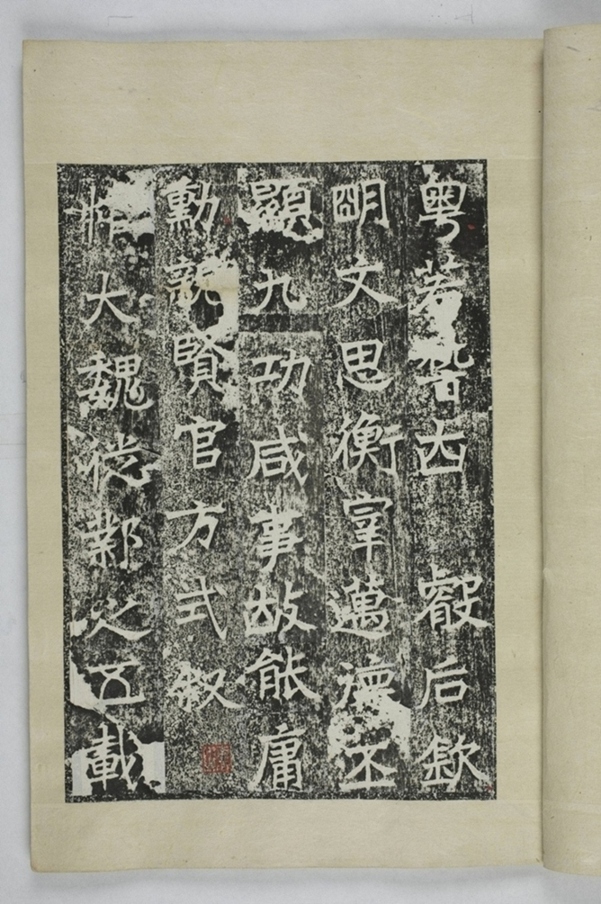 粵若稽古叡后欽
明文思衡宰邁德丕
顯九功咸事故能庸
勳親賢官方式叙
惟大魏徙鄴之五載